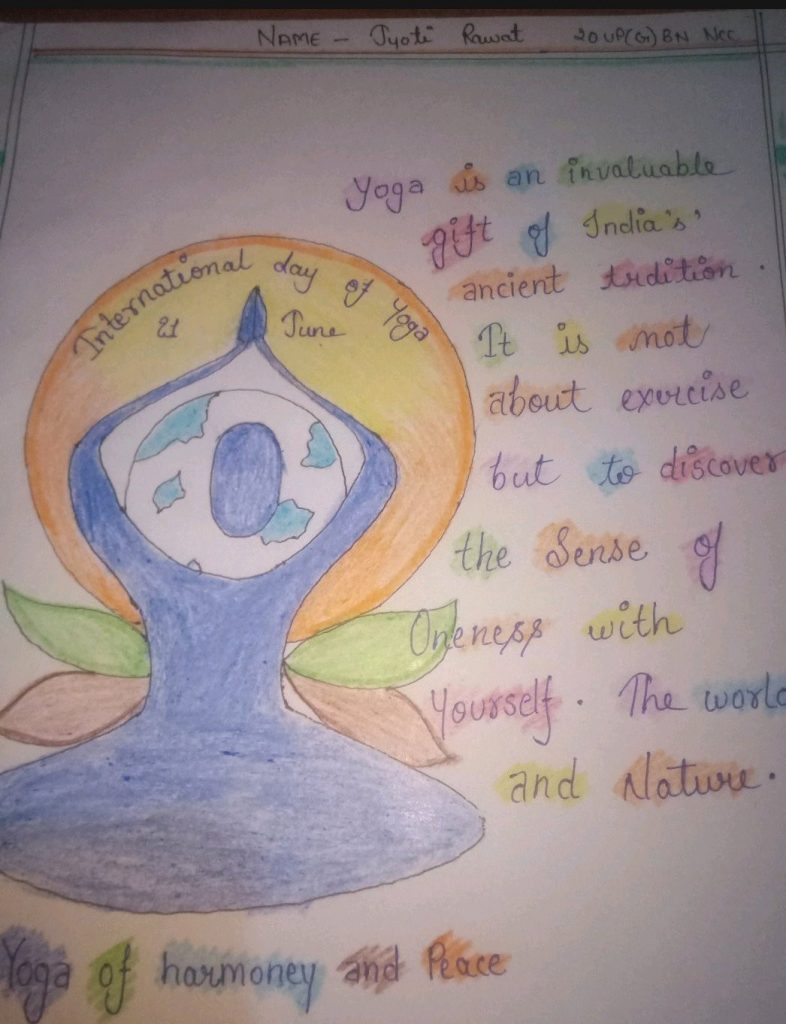 NAME - Jyoti Rawat 20 UP(G) BN NCC
Yoga is an invaluable
gift of India's'
ancient trdition.
It is not
about exercise
but to discover
the Sense of
Oneness with
Yourself. The world
and Nature.
International day of Yoga
21 June
Yoga of harmoney and Peace